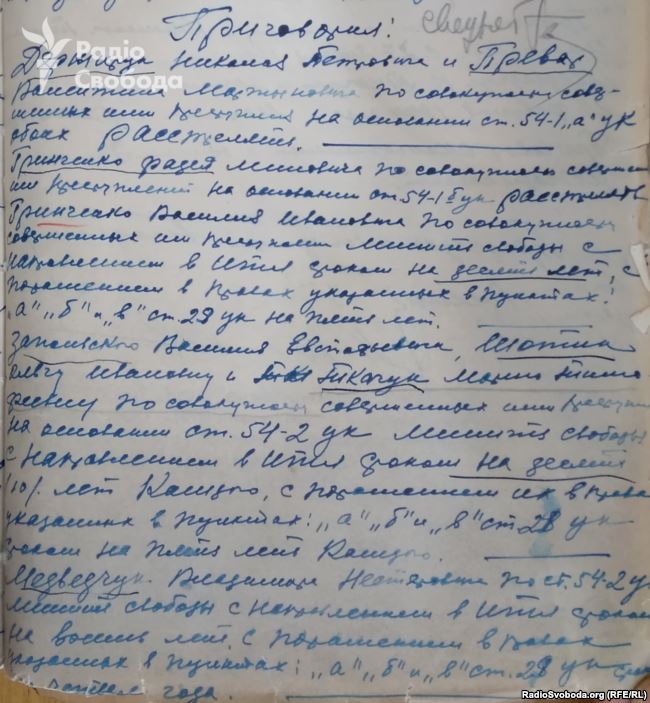 Приговорил:
Радіо Свобода
Николая Петровича и Превар
Валентина Мартыновича по совокупности совер-
шенных ими преступлений на основании ст. 54-1 „а" УК
обоих расстрелять.
Гринченко Фадея по совокупности совершен
ими преступлений на основании ст. 54-1 УК расстрелять
Гринченко Василия Ивановича по совокупности
совершенных им преступлений лишить свободы с
направлением в ИТЛ сроком на десять лет, с
поражением в правах указанных в пунктах:
„а", „б" и „в" ст. 29 УК на пять лет.
Василия Евстафьевича,
Ольгу Ивановну и Ткачук Марию
по совокупности совершенных ими преступ
на основании ст. 54-2 УК лишить свободы
с направлением в ИТЛ сроком на десять
/10/ лет каждого, с поражением их в права
указанных в пунктах: „а", „б" и „в" ст. 29 УК
сроком на пять лет каждого.
Медведчук Владимира Нестеровича по ст. 54-2 У
лишить свободы с направлением в ИТЛ сроком
на восемь лет, с поражением в правах
указанных в пунктах: „а", „б" и „в" ст. 29 УК сро
на четыре года.
RadioSvoboda.org (RFE/RL)